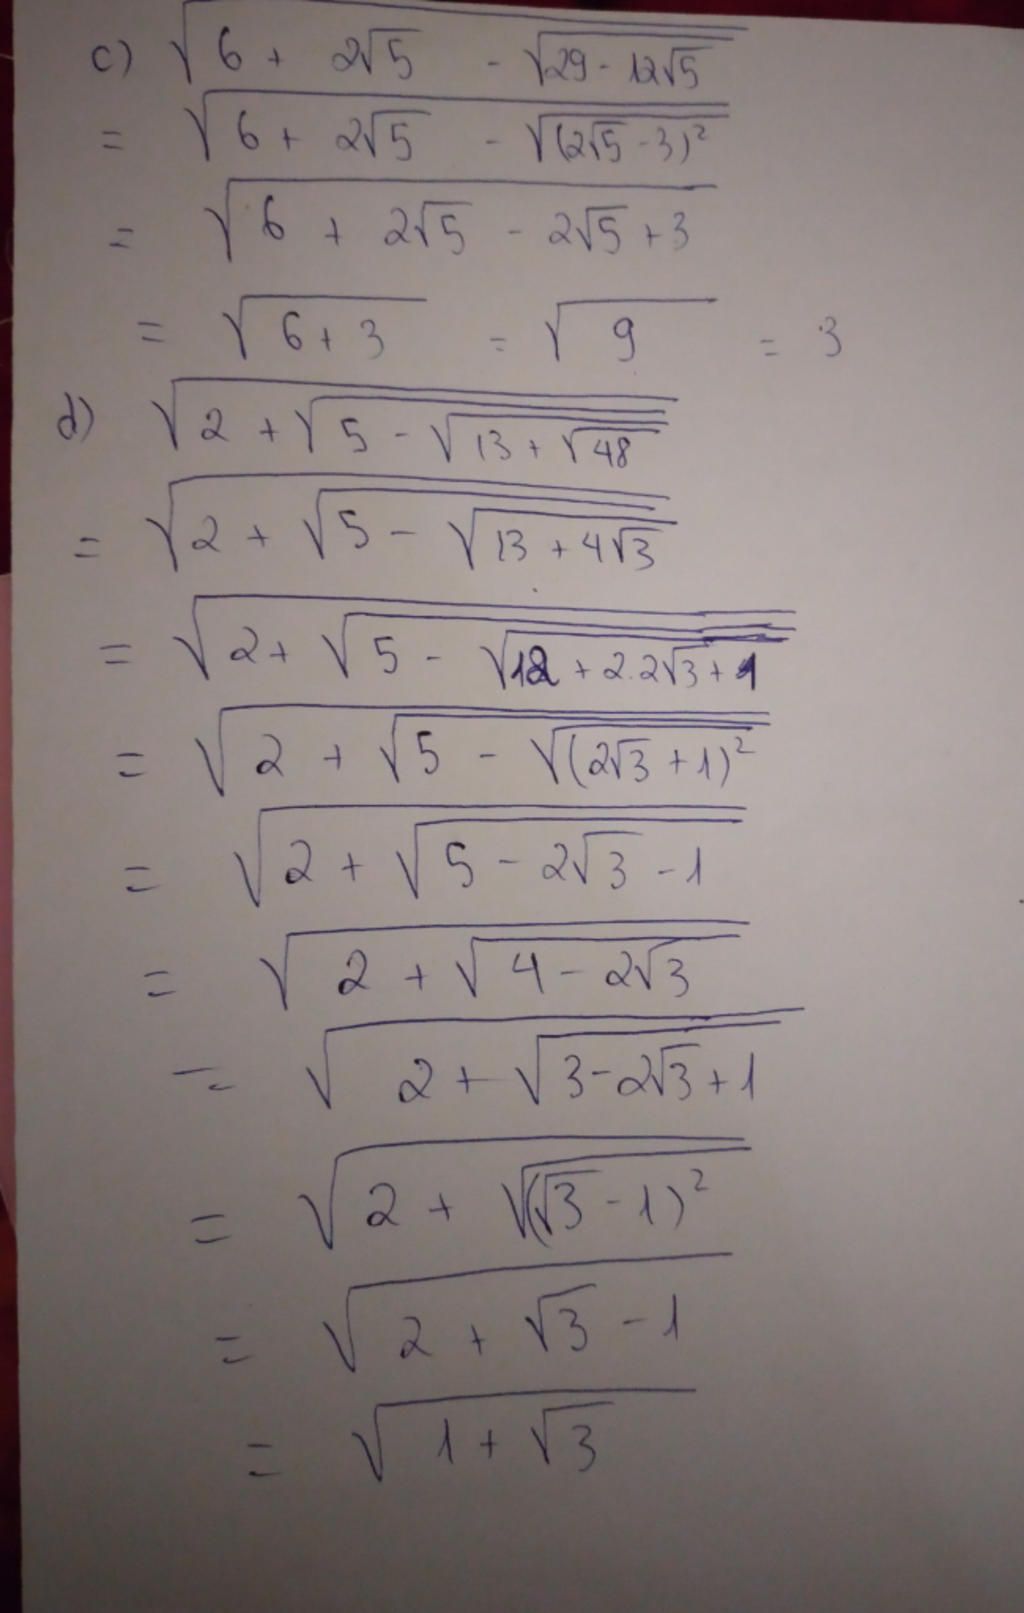 c) √(6 + 2√5 - √(29 - 12√5))
= √(6 + 2√5 - √((2√5 - 3)²))
= √(6 + 2√5 - 2√5 + 3)
= √(6 + 3) = √9 = 3
d) √(2 + √(5 - √(13 + √48)))
= √(2 + √(5 - √(13 + 4√3)))
= √(2 + √(5 - √(12 + 2.2√3 + 1)))
= √(2 + √(5 - √((2√3 + 1)²)))
= √(2 + √(5 - 2√3 - 1))
= √(2 + √(4 - 2√3))
= √(2 + √(3 - 2√3 + 1))
= √(2 + √((√3 - 1)²))
= √(2 + √3 - 1)
= √(1 + √3)